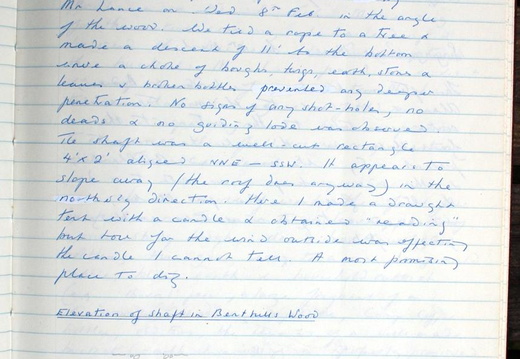 Mr Lance on Wed. 8th Feb in the angle
of the wood. We tied a rope to a tree &
made a descent of 11' to the bottom
where a choke of boughs, twigs, earth, stones &
leaves & broken bottles prevented any deeper
penetration. No signs of any shot-holes, no
deads & no guiding lode was observed.
The shaft was a well-cut rectangle
4' x 2' aligned NNE - SSW. It appears to
slope away (the roof does anyway) in the
northerly direction. Here I made a draught
test with a candle & obtained "reading"
but how far the wind outside was affecting
the candle I cannot tell. A most promising
place to dig.
Elevation of shaft in Benthills Wood